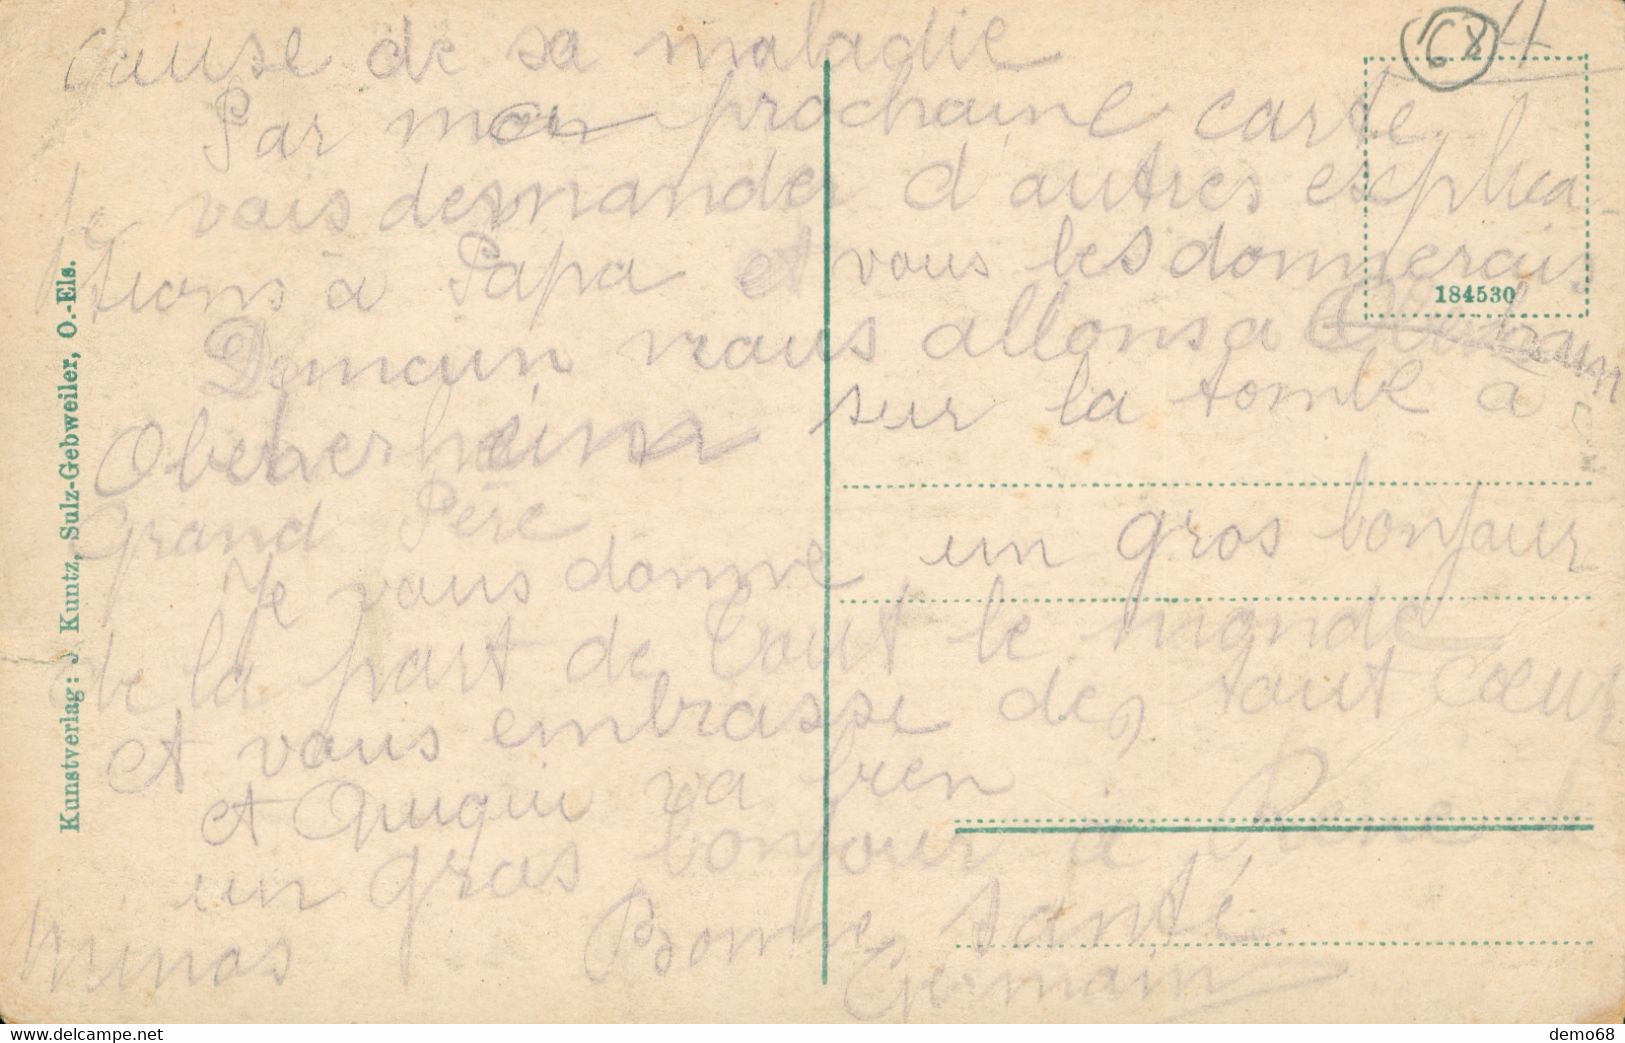 68 H
cause de sa maladie
Par mon prochaine carte
je vais demander d'autres explica-
tions à Papa et vous les donnerais
Demain nous allons a
Oberherheim sur la tombe a
Grand Père
un gros bonjour
Je vous donne
de la part de tout le monde
et vous embrasse de, tout cœur
et Guigui va bien
un gros bonjour à René de
Bonne santé
Germain
184530
Kunstverlag: J. Kuntz, Sulz-Gebweiler, O.-Els.
delcampe.net
demo68